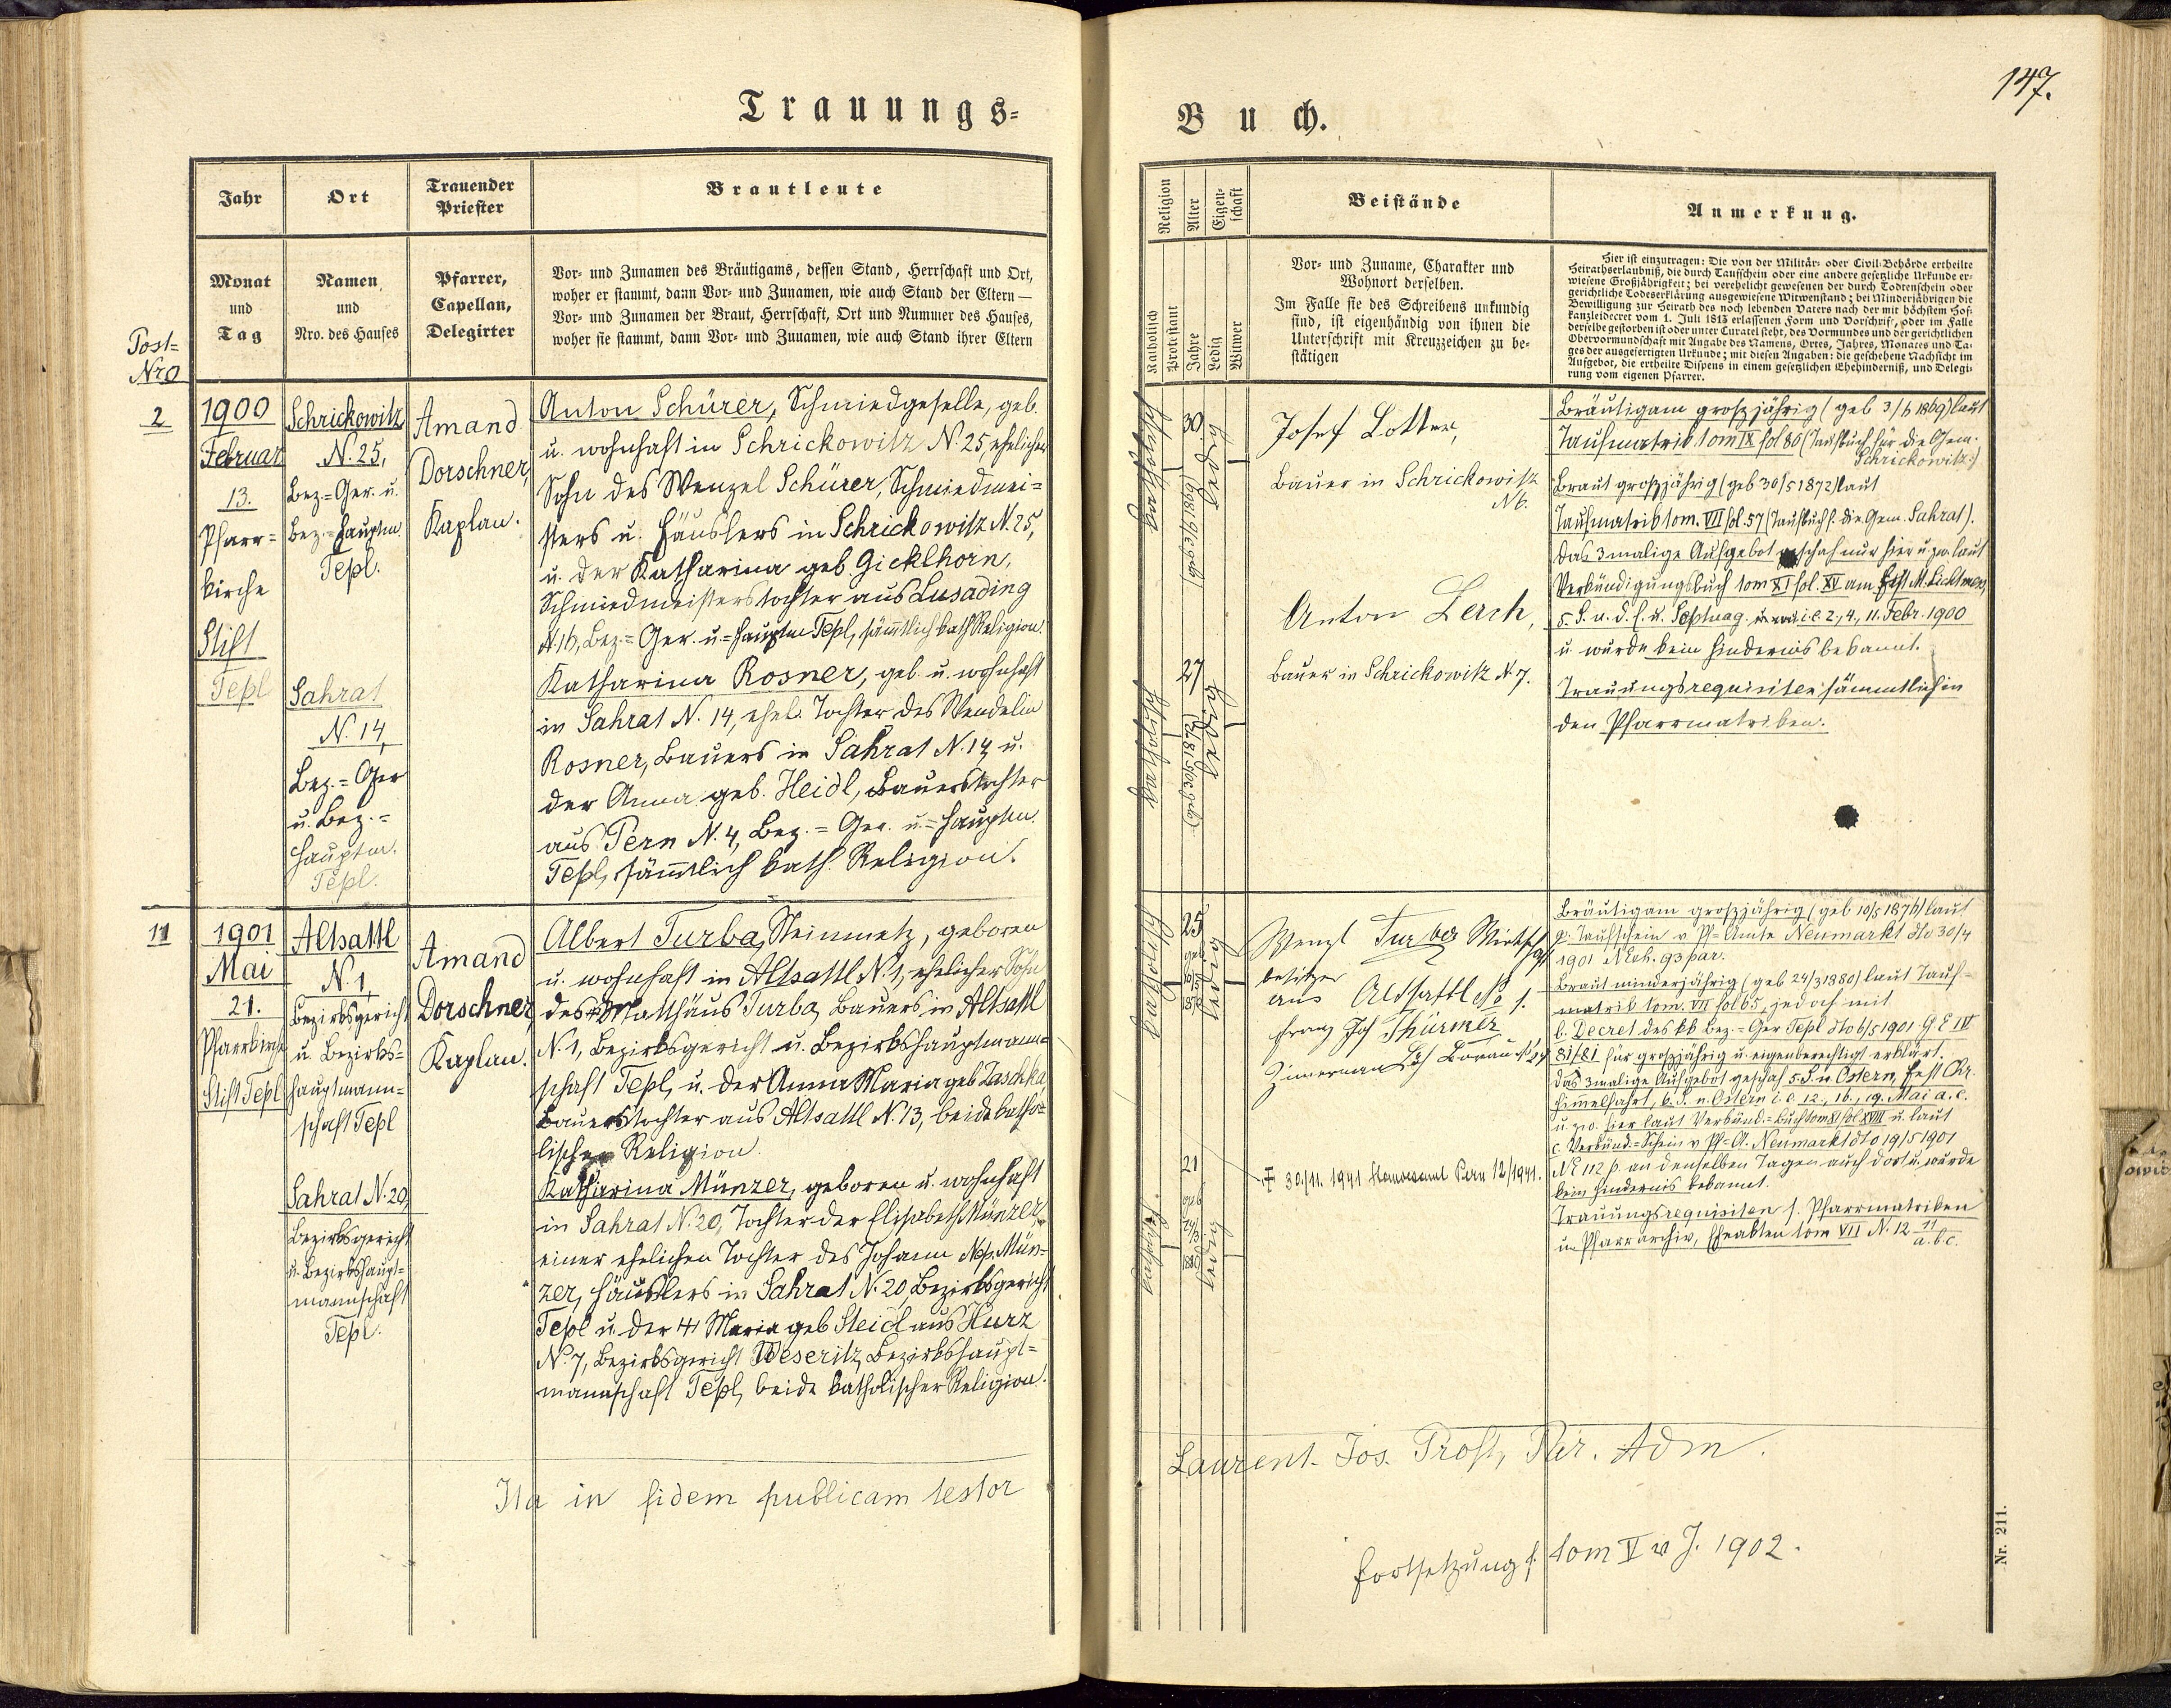 Trauungs-
Buch.
147.
Jahr
Ort
Trauender
Priester
Brautleute
Monat
und
Tag
Namen
und
Nro. des Hauses
Pfarrer,
Capellan,
Delegirter
Vor- und Zunamen des Bräutigams, dessen Stand, Herrschaft und Ort,
woher er stammt, dann Vor- und Zunamen, wie auch Stand der Eltern —
Vor- und Zunamen der Braut, Herrschaft, Ort und Nummer des Hauses,
woher sie stammt, dann Vor- und Zunamen, wie auch Stand ihrer Eltern
Post-
Nro
Religion
Alter
Eigen-
schaft
Beistände
Anmerkung.
Katholisch
Protestant
Jahre
Ledig
Witwer
Vor- und Zuname, Charakter und
Wohnort derselben.
Im Falle sie des Schreibens unkundig
sind, ist eigenhändig von ihnen die
Unterschrift mit Kreuzzeichen zu be-
stätigen
Hier ist einzutragen: Die von der Militär- oder Civil-Behörde ertheilte
Heirathserlaubniß, die durch Taufschein oder eine andere gesetzliche Urkunde er-
wiesene Großjährigkeit; bei verehelicht gewesenen der durch Todtenschein oder
gerichtliche Todeserklärung ausgewiesene Witwenstand; bei Minderjährigen die
Bewilligung zur Heirath des noch lebenden Vaters nach der mit höchstem Hof-
kanzleidecret vom 1. Juli 1813 erlassenen Form und Vorschrift, oder im Falle
derselbe gestorben ist oder unter Curatel steht, des Vormundes und der gerichtlichen
Obervormundschaft mit Angabe des Namens, Ortes, Jahres, Monates und Ta-
ges der ausgefertigten Urkunde; mit diesen Angaben: die geschehene Nachsicht im
Aufgebot, die ertheilte Dispens in einem gesetzlichen Ehehinderniß, und Delegi-
rung vom eigenen Pfarrer.
2
1900
Februar
13.
Pfarr-
kirche
Stift
Tepl
Schrickowitz
N. 25,
Bez.=Ger. u.
Bez.=Hauptm.
Tepl.
Sahrat
N. 14,
Bez.=Ger
u. Bez.=
Hauptm.
Tepl.
Amand
Dorschner,
Kaplan.
Anton Schürer, Schmiedgeselle, geb.
u. wohnhaft in Schrickowitz N. 25, ehelicher
Sohn des Wenzel Schürer, Schmiedmei-
sters u. Häuslers in Schrickowitz N. 25,
u. der Katharina geb. Gicklhorn,
Schmiedmeisterstochter aus Lusading
N. 16, Bez.=Ger. u.=Hauptm Tepl, sämtlich kath Religion.
Katharina Rosner, geb. u. wohnhaft
in Sahrat N. 14, ehel. Tochter des Wendelin
Rosner, Bauers in Sahrat N. 14, u.
der Anna geb. Heidl, Bauerstochter
aus Pern N. 4, Bez.=Ger. u.=Hauptm.
Tepl, sämtlich kath. Religion.
katholisch
30
ledig
27
katholisch
ledig
Josef Lotter,
Bauer in Schrickowitz
N 6.
Anton Lerch,
Bauer in Schrickowitz N. 7.
Bräutigam großjährig (geb 3/6 1869) laut
Taufmatrik tom IX fol 86 (Taufbuch für die Gem.
Schrickowitz.)
Braut großjährig (geb 30/5 1872) laut
Taufmatrik tom. VII fol. 57 (Taufbuch f. die Gem. Sahrat).
Das 3malige Aufgebot geschah nur hier u. zw. laut
Verkündigungsbuch tom XI fol. XV am Fest M. Lichtmes,
5. S. n. d. E. u. Septuag. i. e. 2., 4., 11. Febr. 1900
u. wurde kein Hindernis bekannt.
Trauungsrequisiten sämmtlich in
den Pfarrmatriken.
11
1901
Mai
21.
Pfarrkirche
Stift Tepl
Altsattl
N. 1,
Bezirksgericht
u. Bezirks-
hauptmann-
schaft Tepl
Sahrat N. 20,
Bezirksgericht
u. Bezirkshaupt-
mannschaft
Tepl.
Amand
Dorschner,
Kaplan.
Albert Turba, Steinmetz, geboren
u. wohnhaft in Altsattl N. 1, ehelicher Sohn
des Matthäus Turba, Bauers in Altsattl
N. 1, Bezirksgericht u. Bezirkshauptmann-
schaft Tepl, u. der Anna Maria geb Laschka,
Bauerstochter aus Altsattl N. 13, beide katho-
lischer Religion.
Katharina Münzer, geboren u. wohnhaft
in Sahrat N. 20, Tochter der Elisabeth Münzer,
einer ehelichen Tochter des Johann Nep. Mün-
zer, Häuslers in Sahrat N. 20, Bezirksgericht
Tepl u. der Maria geb Steidl aus Hurz
N. 7, Bezirksgericht Weseritz, Bezirkshaupt-
mannschaft Tepl, beide katholischer Religion.
katholisch
25
geb
ledig
21
geb
24/3
ledig
Wenzl Turba Wirtschafts
besitzer
aus Altsattl No 1.
Franz Jos Thürmer
Zimmermann
‡ 30/11. 1941 Pern 12/1941.
Bräutigam großjährig (geb 10/5 1876) laut
Taufschein v Pf=Amte Neumarkt dto 30/4
1901 N Eh. 93 par.
Braut minderjährig (geb 24/3 1880) laut Tauf-
matrik tom. VII fol 65, jedoch mit
b. Decret des kk Bez.=Ger Tepl dto 6/5 1901 G Z IV
81/81 für großjährig u. eigenberechtigt erklärt.
Das 3malige Aufgebot geschah 5. S. n. Ostern, Fest Chr.
Himmelfahrt, 6. S. n. Ostern i. e. 12., 16., 19. Mai a. c.
u. zw. hier laut Verkünd.=Buch tom XI fol XVIII u. laut
c. Verkünd.=Schein v Pf=A. Neumarkt dto 19/5 1901
N E 112 p. an denselben Tagen auch dort u. wurde
kein Hindernis bekannt.
Trauungsrequisiten f. Pfarrmatriken
u. Pfarrarchiv, Eheakten tom VII N. 12 11/a.b.c.
Ita in fidem publicam testor
Laurent. Jos. Prost, Par. Adm.
Fortsetzung f. tom V v J. 1902.
Nr. 211.